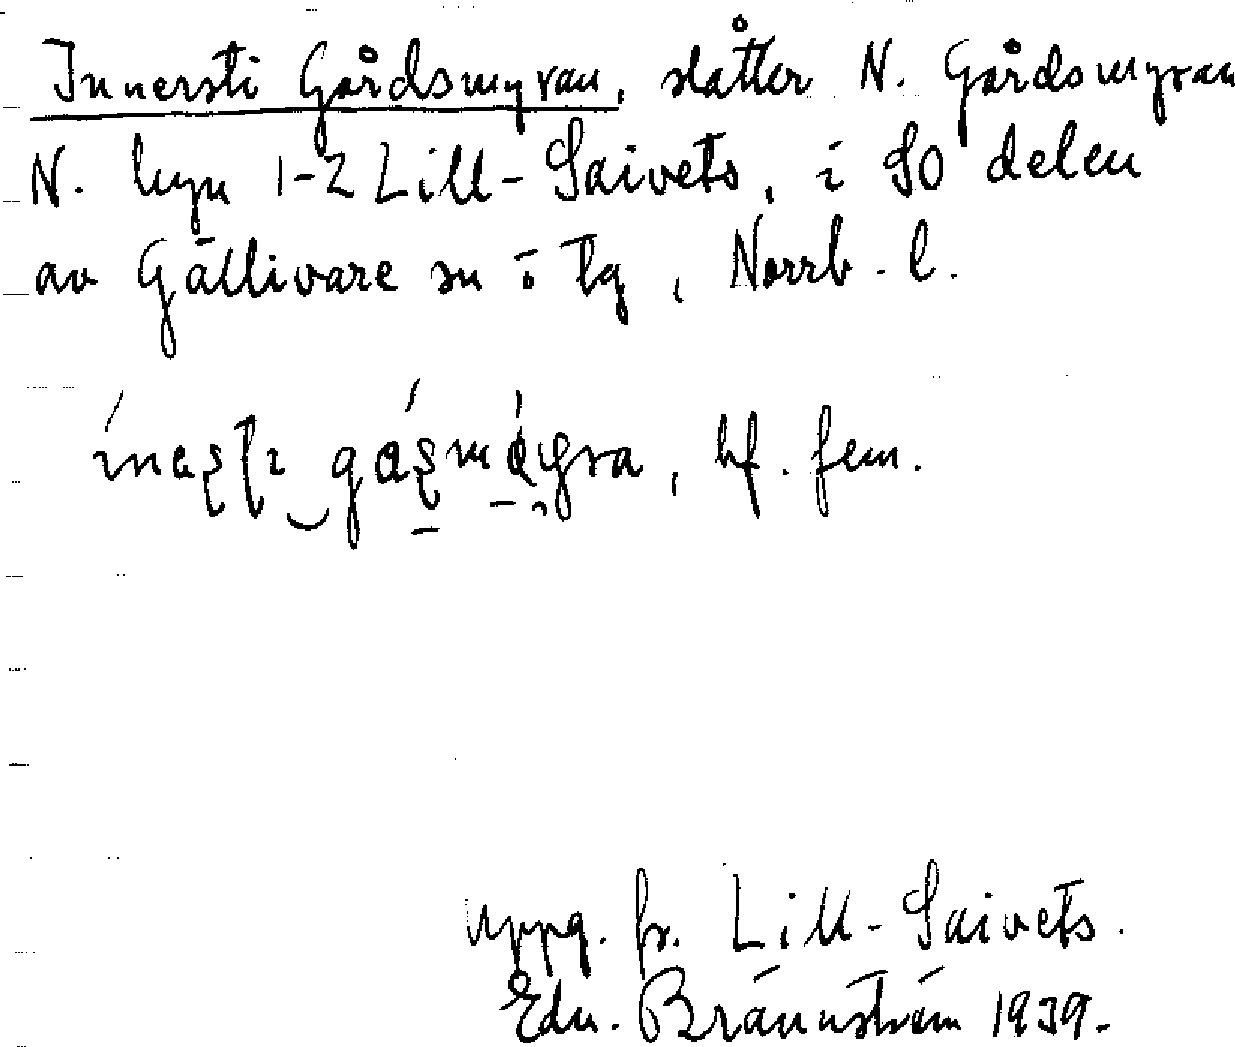 Innersti Gårdsmyran, slåtter N. Gårdsmyran
N. hmn 1-2 Lill-Saivets, i SO delen
av Gällivare sn ö tg, Norrb. l.
bf. fem.
uppg. fr. Lill-Saivets.
Edv. Brännström 1939.